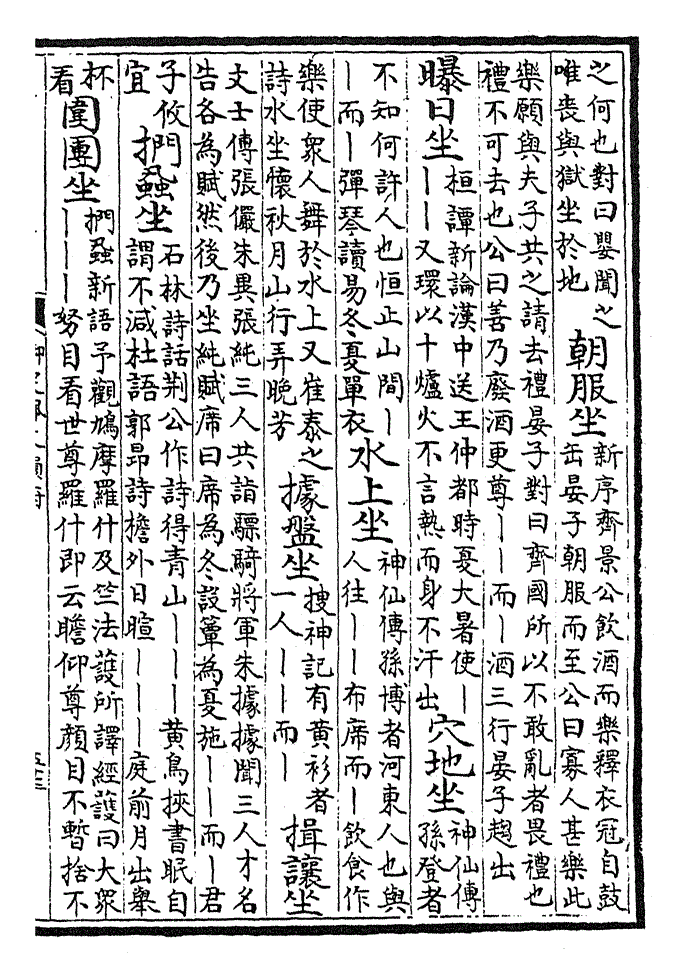 之何也對曰嬰聞之
唯喪與獄坐於地
朝服坐
新序齊景公飲酒而樂釋衣冠自鼓
缶晏子朝服而至公曰寡人甚樂此
樂願與夫子共之請去禮晏子對曰齊國所以不敢亂者畏禮也
禮不可去也公曰善乃廢酒更尊｜｜而｜酒三行晏子趨出
曝日坐
桓譚新論漢中送王仲都時夏大暑使｜
｜｜又環以十爐火不言熱而身不汗出
穴地坐
神仙傳
孫登者
不知何許人也恒止山間｜
｜而｜彈琴讀易冬夏單衣
水上坐
神仙傳孫博者河東人也與
人往｜｜布席而｜飲食作
樂使衆人舞於水上又崔泰之
詩水坐懷秋月山行弄晚芳
據盤坐
搜神記有黃衫者
一人｜｜而｜
揖讓坐
文士傳張儼朱異張純三人共詣驃騎將軍朱據據聞三人才名
告各為賦然後乃坐純賦席曰席為冬設簟為夏施｜｜而｜君
子攸
宜
捫蝨坐
石林詩話荆公作詩得青山｜｜｜黃鳥挾書眠自
謂不減杜語郭昂詩檐外日暄｜｜｜庭前月出舉
杯
看
圍團坐
捫蝨新語予觀鳩摩羅什及竺法護所譯經護曰大衆
｜｜｜努目看世尊羅什即云瞻仰尊顏目不暫捨不